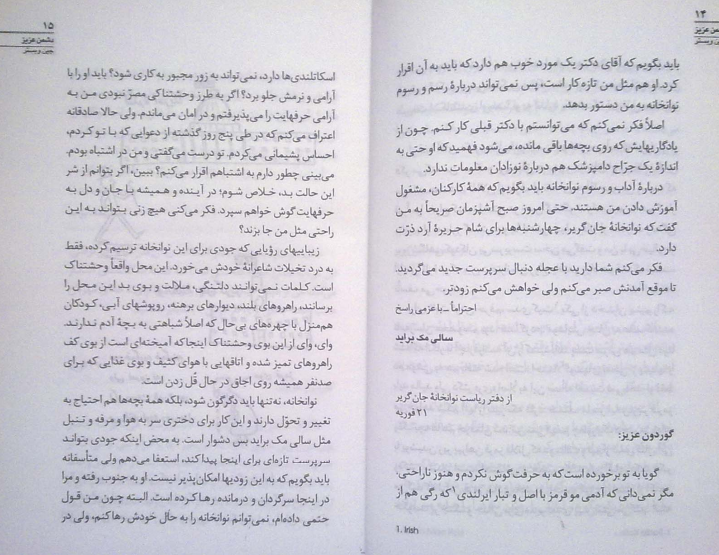 ۱۴
دشمن عزیز
جین وبستر
باید بگویم که آقای دکتر یک مورد خوب هم دارد که باید به آن اقرار
کرد. او هم مثل من تازه کار است، پس نمی‌تواند دربارهٔ رسم و رسوم
نوانخانه به من دستور بدهد.
اصلاً فکر نمی‌کنم که می‌توانستم با دکتر قبلی کار کنم. چون از
یادگاریهایش که روی بچه‌ها باقی مانده، می‌شود فهمید که او حتی به
اندازهٔ یک جرّاح دامپزشک هم دربارهٔ نوزادان معلومات ندارد.
دربارهٔ آداب و رسوم نوانخانه باید بگویم که همهٔ کارکنان، مشغول
آموزش دادن من هستند. حتی امروز صبح آشپزمان صریحاً به من
گفت که نوانخانهٔ جان گریر، چهارشنبه‌ها برای شام حریرهٔ آرد ذرّت
دارد.
فکر می‌کنم شما دارید با عجله دنبال سرپرست جدید می‌گردید.
تا موقع آمدنش صبر می‌کنم ولی خواهش می‌کنم زودتر.
احتراماً ــ با عزمی راسخ
سالی مک براید
از دفتر ریاست نوانخانهٔ جان گریر
۲۱ فوریه
گوردون عزیز:
گویا به تو برخورده است که به حرفت گوش نکردم و هنوز ناراحتی،
مگر نمی‌دانی که آدمی مو قرمز با اصل و تبار ایرلندی۱ که رگی هم از
1. Irish
۱۵
دشمن عزیز
جین وبستر
اسکاتلندی‌ها دارد، نمی‌تواند به زور مجبور به کاری شود؟ باید او را با
آرامی و نرمش جلو برد؟ اگر به طرز وحشتناکی مصرّ نبودی من به
آرامی حرفهایت را می‌پذیرفتم و در امان می‌ماندم. ولی حالا صادقانه
اعتراف می‌کنم که در طی پنج روز گذشته از دعوایی که با تو کردم،
احساس پشیمانی می‌کردم. تو درست می‌گفتی و من در اشتباه بودم.
می‌بینی چطور دارم به اشتباهم اقرار می‌کنم؟ ببین، اگر بتوانم از شر
این حالت بد، خلاص شوم؛ در آینده و همیشه با جان و دل به
حرفهایت گوش خواهم سپرد. فکر می‌کنی هیچ زنی بتواند به این
راحتی مثل من جا بزند؟
زیباییهای رؤیایی که جودی برای این نوانخانه ترسیم کرده، فقط
به درد تخیلات شاعرانهٔ خودش می‌خورد. این محل واقعاً وحشتناک
است. کلمات نمی‌توانند دلتنگی، ملالت و بوی بد این محل را
برسانند، راهروهای بلند، دیوارهای برهنه، روپوشهای آبی، کودکان
هم‌منزل با چهره‌های بی‌حال که اصلاً شباهتی به بچهٔ آدم ندارند.
وای، وای از این بوی وحشتناک اینجا که آمیخته‌ای از بوی کف
راهروهای تمیز شده و اتاقهایی با هوای کثیف و بوی غذایی که برای
صدنفر همیشه روی اجاق در حال قُل زدن است.
نوانخانه، نه‌تنها باید دگرگون شود، بلکه همهٔ بچه‌ها هم احتیاج به
تغییر و تحوّل دارند و این کار برای دختری سر به هوا و مرفه و تنبل
مثل سالی مک براید بس دشوار است. به محض اینکه جودی بتواند
سرپرست تازه‌ای برای اینجا پیدا کند، استعفا می‌دهم ولی متأسفانه
باید بگویم که به این زودیها امکان‌پذیر نیست. او به جنوب رفته و مرا
در اینجا سرگردان و درمانده رها کرده است. البته چون من قول
حتمی داده‌ام، نمی‌توانم نوانخانه را به حال خودش رها کنم، ولی در